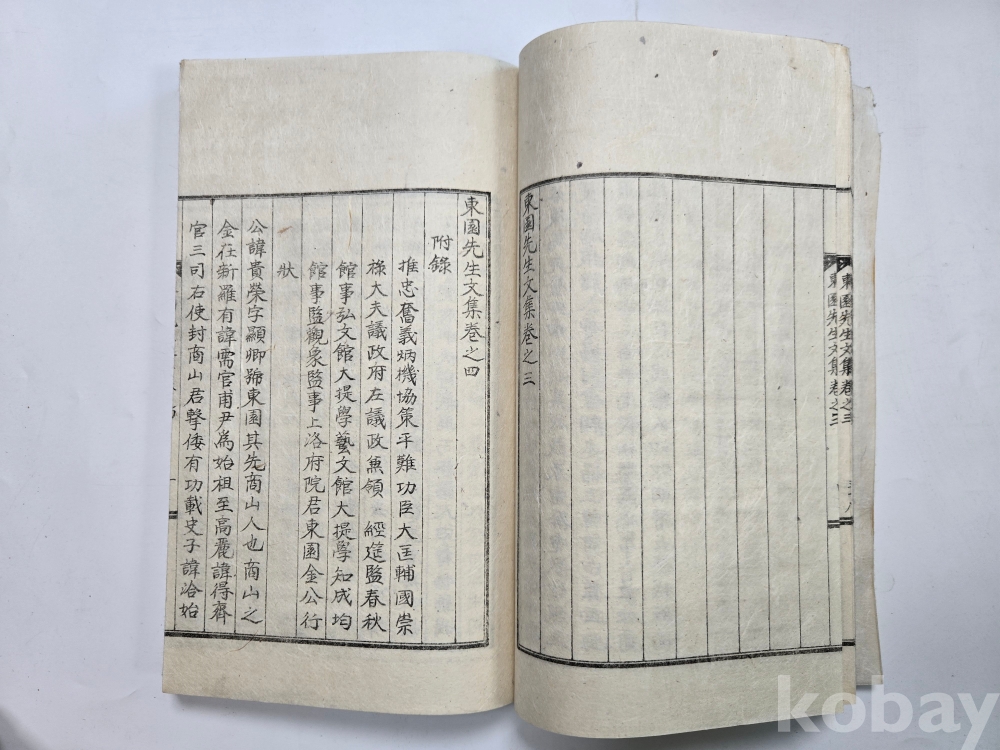 東園先生文集卷之三
東園先生文集卷之三
東園先生文集卷之三
東園先生文集卷之四
附錄
推忠奮義炳機協策平難功臣大匡輔國崇
祿大夫議政府左議政兼領 經筵監春秋
館事弘文館大提學藝文館大提學知成均
館事監觀象監事上洛府院君東園金公行
狀
公諱貴榮字顯卿號東園其先商山人也商山之
金在新羅有諱需官甫尹爲始祖至高麗諱得齊
官三司右使封商山君擊倭有功載史子諱洽始
kobay